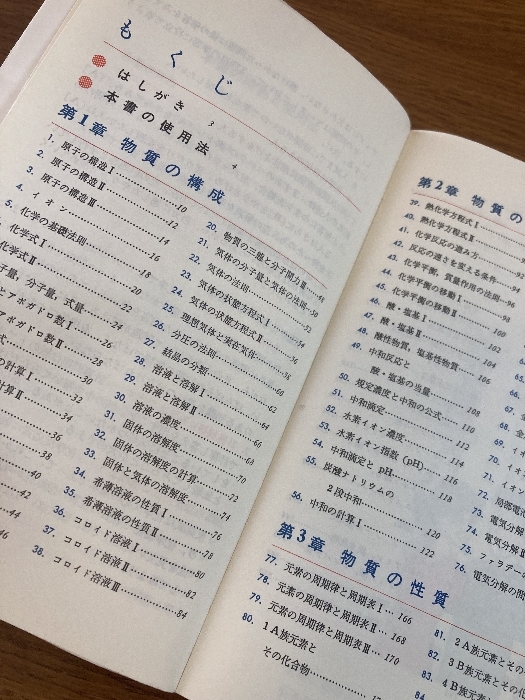 もくじ
はしがき 3
本書の使用法 4
第1章 物質の構成
1. 原子の構造Ⅰ……10
2. 原子の構造Ⅱ……12
3. 原子の構造Ⅲ……14
4. イオン……16
5. 化学の基礎法則……18
化学式Ⅰ……20
化学式Ⅱ……22
子量，分子量，式量……24
とアボガドロ数Ⅰ……26
アボガドロ数Ⅱ……28
式……30
の計算Ⅰ……32
計算Ⅱ……34
36
38
40
42
44
46
20. 物質の三態と分子間力……48
21. 気体の分子量と気体の法則……50
22. 気体の法則……52
23. 気体の状態方程式Ⅰ……54
24. 気体の状態方程式Ⅱ……56
25. 理想気体と実在気体……58
26. 分圧の法則……60
27. 結晶の分類……62
28. 溶液と溶解Ⅰ……64
29. 溶液と溶解Ⅱ……66
30. 溶液の濃度……68
31. 固体の溶解度……70
32. 固体の溶解度の計算……72
33. 固体と気体の溶解度……74
34. 希薄溶液の性質Ⅰ……76
35. 希薄溶液の性質Ⅱ……78
36. コロイド溶液Ⅰ……80
37. コロイド溶液Ⅱ……82
38. コロイド溶液Ⅲ……84
第2章 物質の
39. 熱化学方程式Ⅰ
40. 熱化学方程式Ⅱ
41. 化学反応の進み方
42. 反応の速さを変える条件……94
43. 化学平衡，質量作用の法則……96
44. 化学平衡の移動Ⅰ……98
45. 化学平衡の移動Ⅱ……100
46. 酸・塩基Ⅰ……102
47. 酸・塩基Ⅱ……104
48. 酸性物質，塩基性物質……106
49. 中和反応と
酸・塩基の当量……108
50. 規定濃度と中和の公式……110
51. 中和滴定……112
52. 水素イオン濃度……114
53. 水素イオン指数（pH）……116
54. 中和滴定と pH……118
55. 炭酸ナトリウムの
2段中和……120
56. 中和の計算Ⅰ……122
66. 
67. 
68. 金
69. イオ
70. イオ
71. イオ
72. 局部電池
73. 電気分解
74. 電気分解
75. ファラデー
76. 電気分解の
第3章 物質の性質
77. 元素の周期律と周期表Ⅰ…166
78. 元素の周期律と周期表Ⅱ…168
79. 元素の周期律と周期表Ⅲ…170
80. 1A族元素と
その化合物……
81. 2A族元素とその
82. 3B族元素とその
83. 4B族元素と
84.